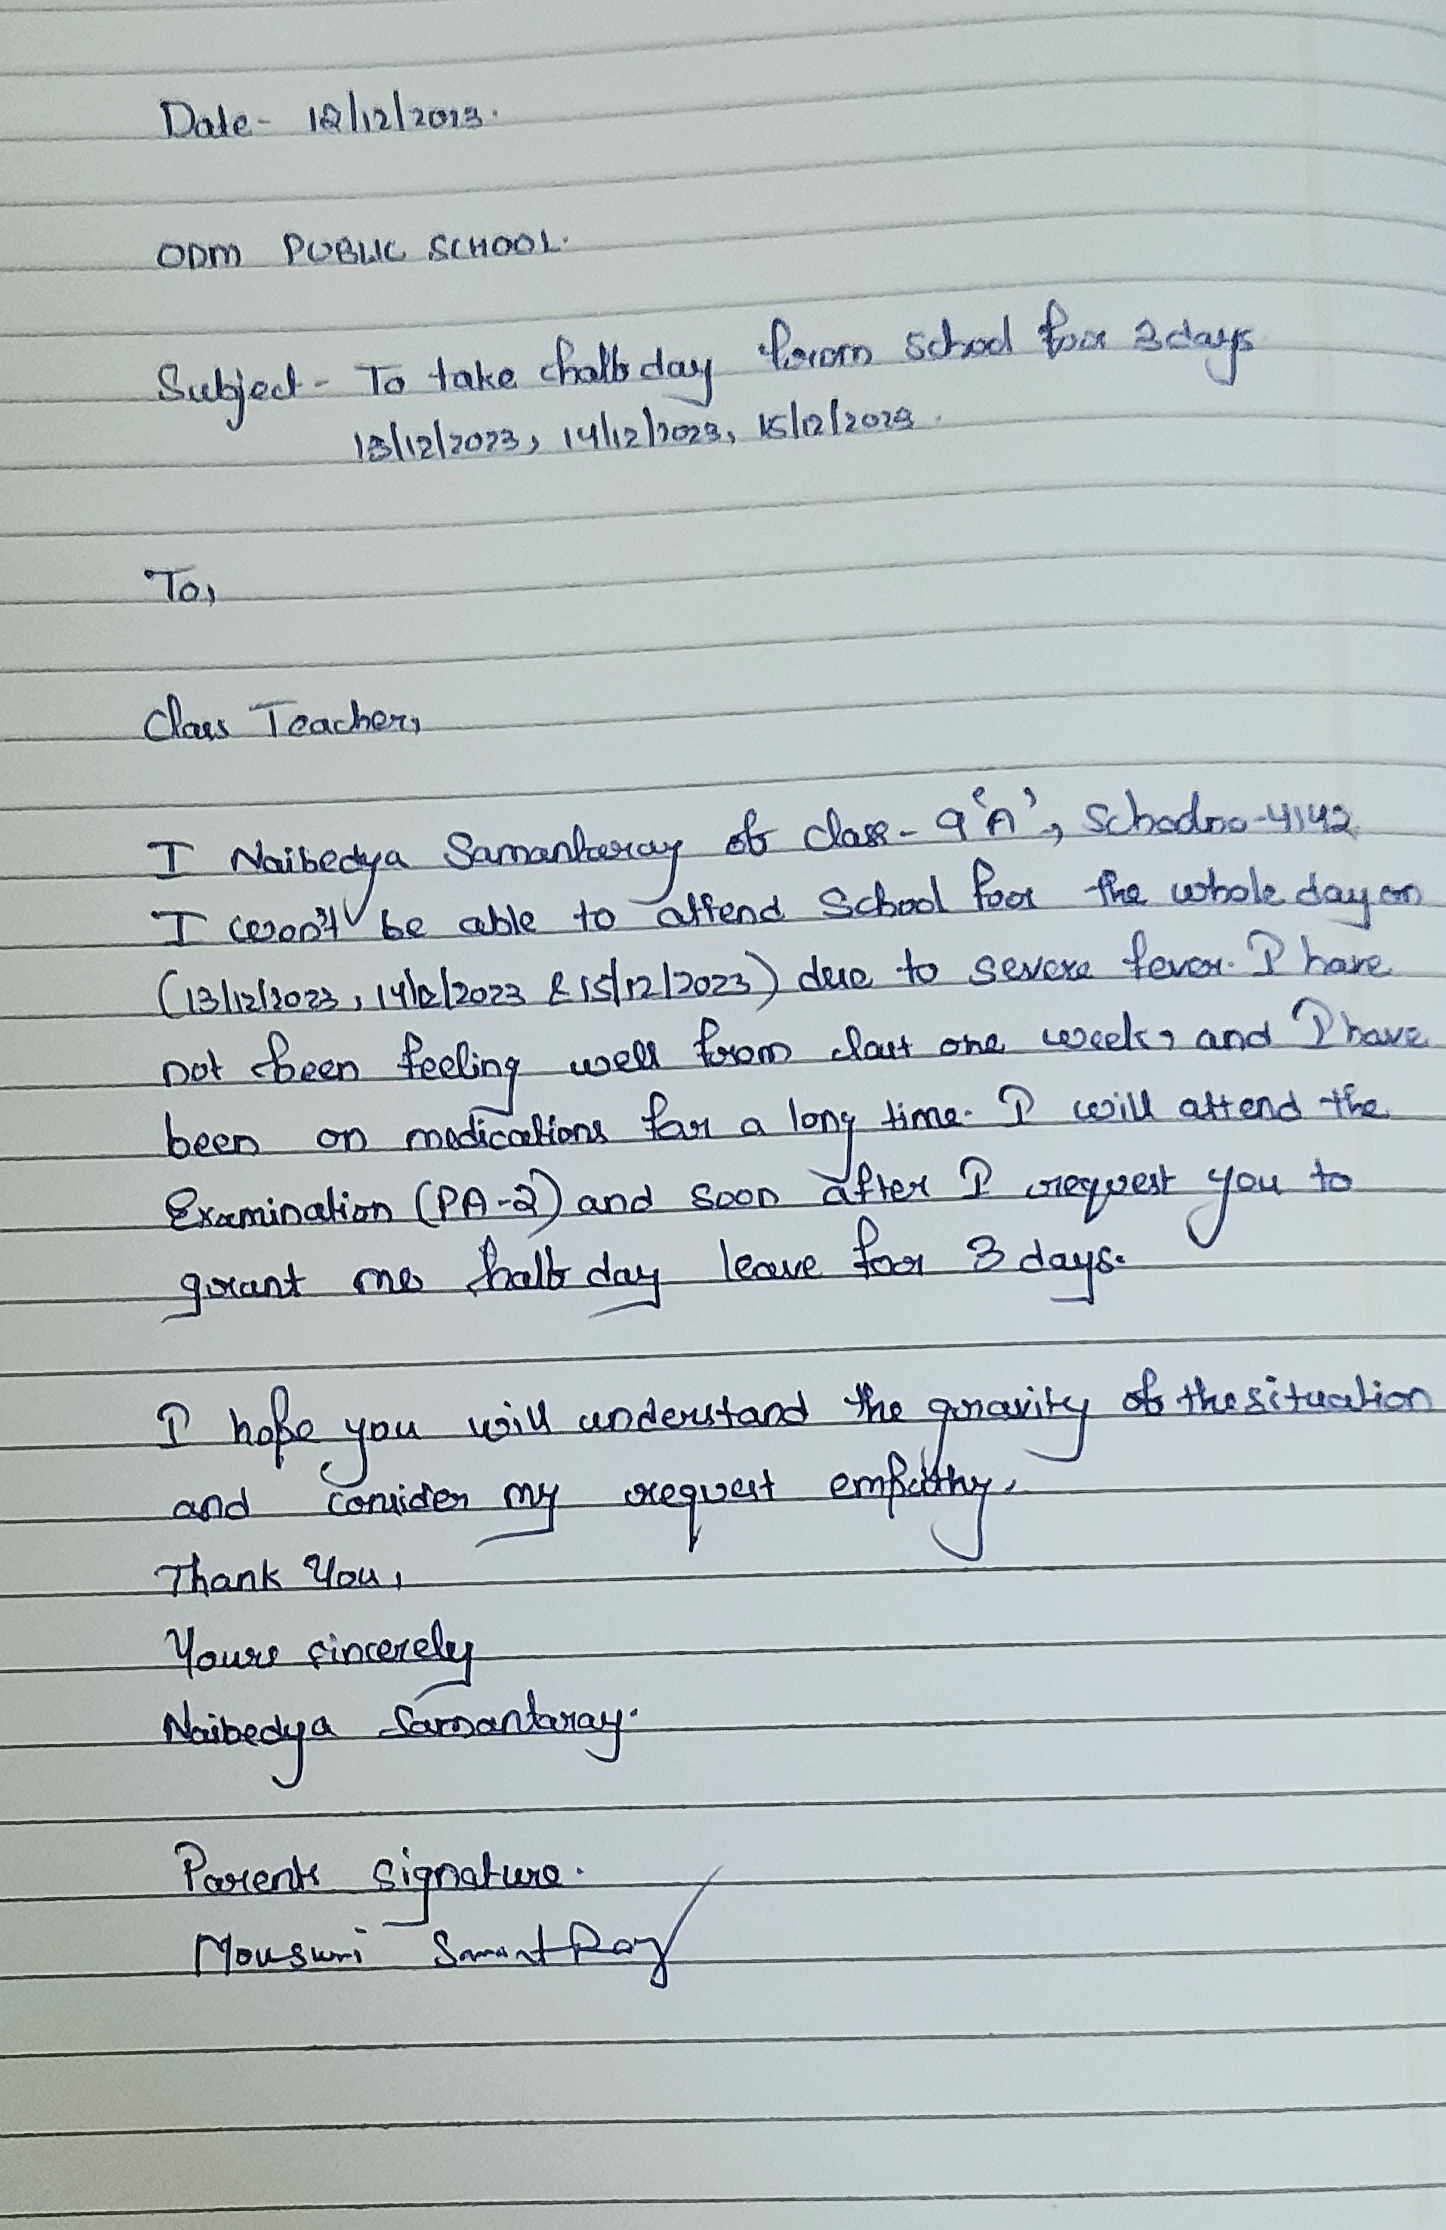 Date- 12/12/2023.
ODM PUBLIC SCHOOL.
Subject- To take half day from school for 3 days
13/12/2023, 14/12/2023, 15/12/2023.
To,
Class Teacher,
I Naibedya Samantaray of class- 9 'A', Schoolno-4142
I won't be able to attend School for the whole day on
(13/12/2023, 14/12/2023 & 15/12/2023) due to severe fever. I have
not been feeling well from last one week, and I have
been on medications for a long time. I will attend the
Examination (PA-2) and soon after I request you to
grant me half day leave for 3 days.
I hope you will understand the gravity of the situation
and consider my request empathy.
Thank You,
Yours sincerely
Naibedya Samantaray.
Parents signature.
Mousumi